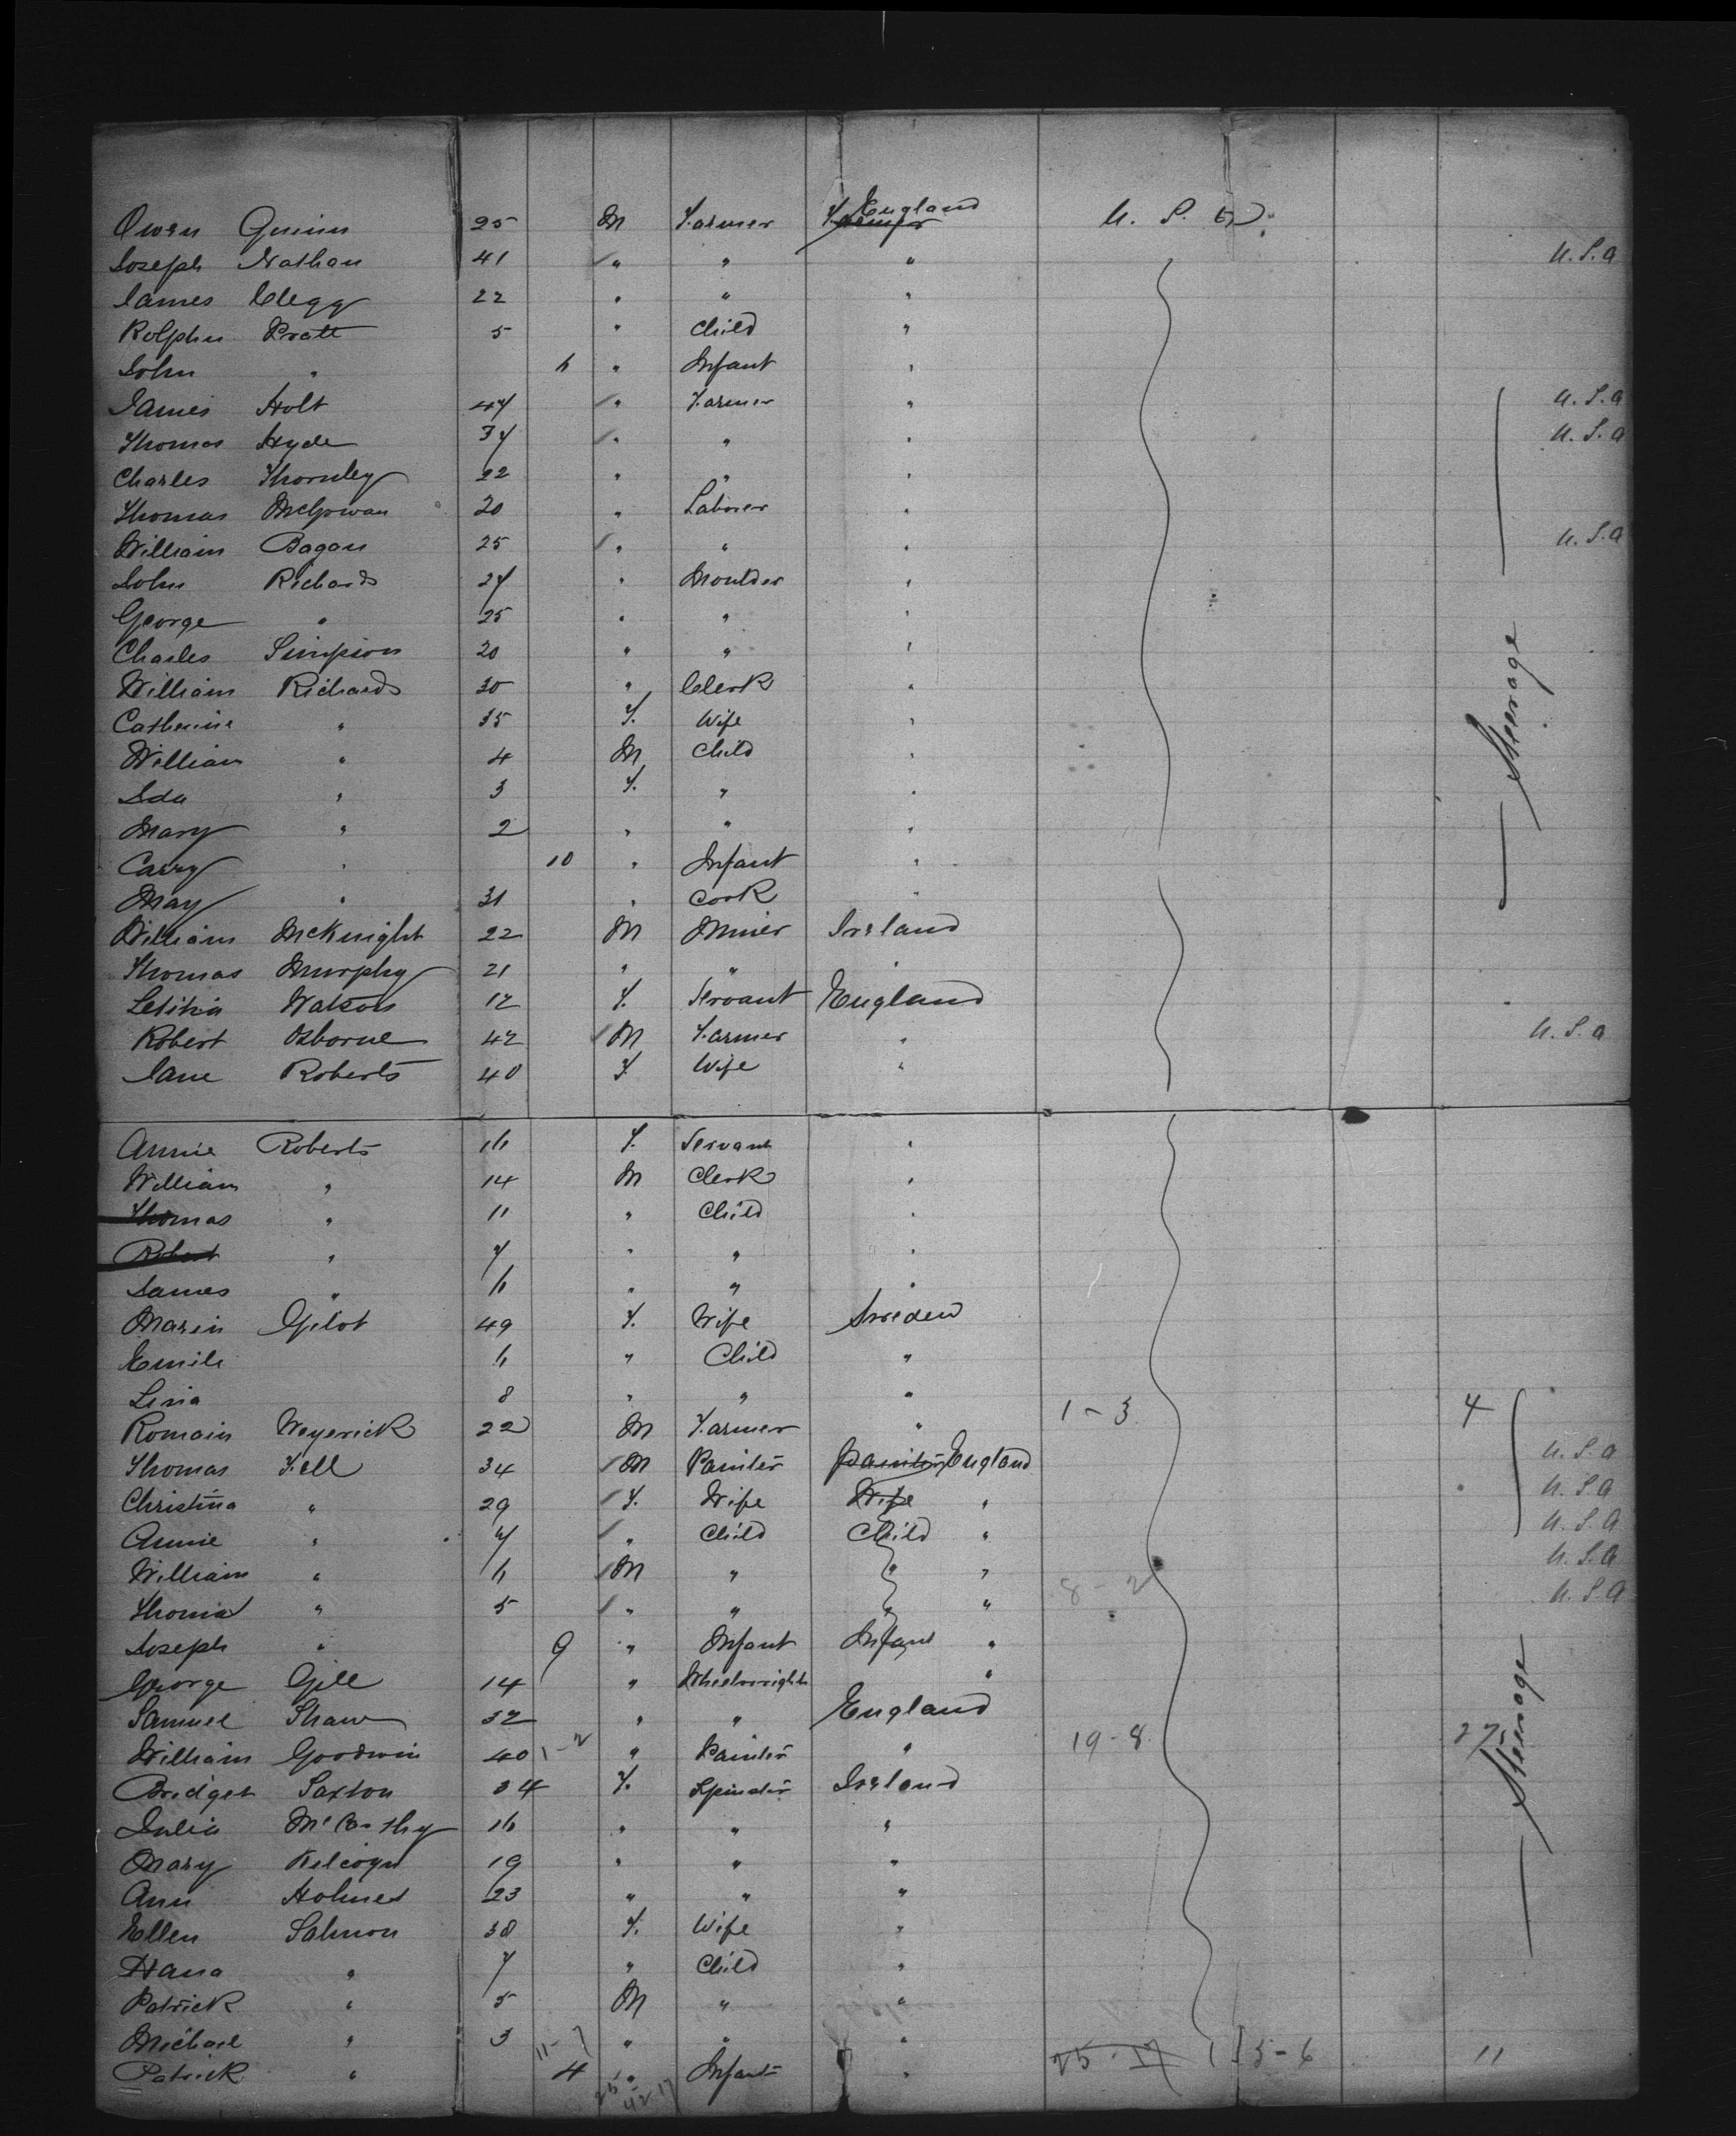 Owen Quinn 25 M Farmer Farmer England U. S. A.
Joseph Nathan 41 " " " U.S.A
James Clegg 22 " " "
Rolphn Pratt 5 " Child "
John " 6 " Infant "
James Holt 47 " Farmer " U.S.A
Thomas Hyde 37 " " " U.S.A
Charles Thornley 22 " " "
Thomas McGowan 20 " Laborer "
William Bagan 25 " " " U.S.A
John Richards 27 " Moulder "
George " 25 " " "
Charles Simpson 20 " " "
William Richards 30 " Clerk "
Catherine " 35 F. Wife "
William " 4 M Child "
Ida " 3 F. " "
Mary " 2 " " "
Carry " 10 " Infant "
May " 31 " Cook "
William McKnight 22 M Miner Ireland
Thomas Murphy 21 " " "
Letitia Watson 17 F. Servant England
Robert Osborne 42 M Farmer " U.S.A
Jane Roberts 40 F Wife "
Steerage
Annie Roberts 16 F. Servant "
William " 14 M Clerk "
Thomas " 11 " Child "
Robert " 7 " " "
James " 6 " " "
Maren Gilot 49 F. Wife Sweden
Emili 6 " Child "
Lina 8 " " "
Romain Weyerick 22 M Farmer " 1-3 4
Thomas Fell 34 M Painter Painter England U.S.A
Christina " 29 F. Wife Wife " U.S.A
Annie " 7 " Child Child " U.S.A
William " 6 M " " " U.S.A
Thomas " 5 " " " " 8-2 U.S.A
Joseph " 9 " Infant Infant "
George Gill 14 " Wheelwright "
Samuel Shaw 32 " " England
William Goodwin 40 1-2 " Painter " 19-8 27
Bridget Saxton 34 F. Spinster Ireland
Julia McCarthy 16 " " "
Mary Kilcoyn 19 " " "
Ann Holmes 23 " " "
Ellen Salmon 38 F. Wife "
Hana " 7 " Child "
Patrick " 5 M " "
Michael " 3 11-7 " " " 25-17 15-6 11
Patrick " 4 " Infant "
25 42-17
Steerage